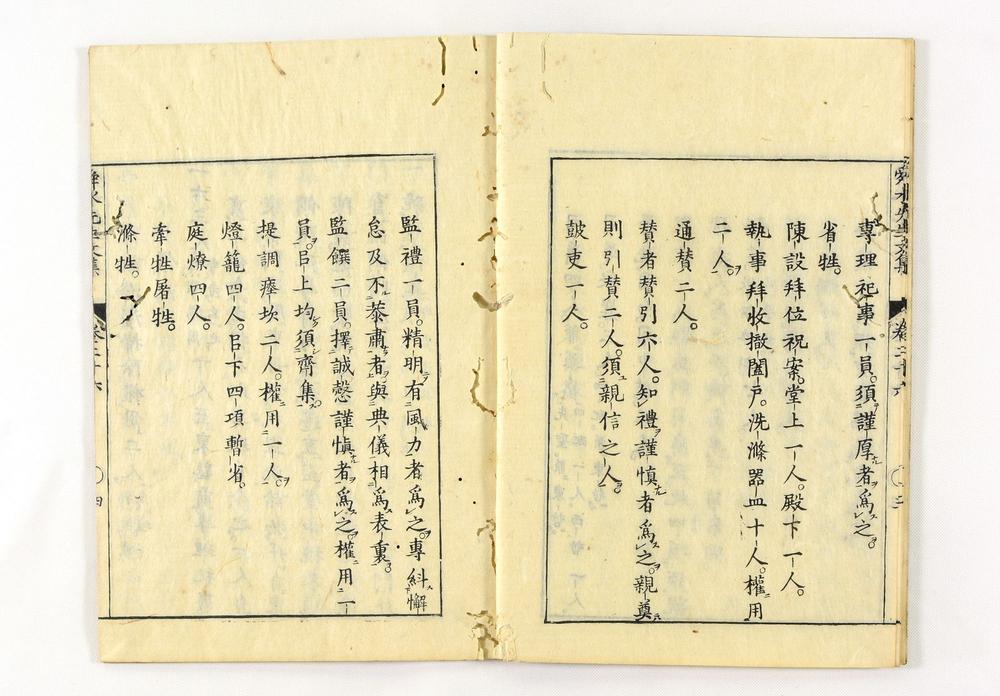 專理祀事一員。須謹厚者爲之。
省牲。
陳設拜位祝案。堂上一人。殿下一人。
執事拜收撤闔戶。洗滌器皿十人。權用
二人。
通贊二人。
贊者贊引六人。知禮謹愼者爲之。親奠
則引贊二人。須親信之人。
鼓吏一人。
監禮一員。精明有風力者爲之。專糾懈
怠及不恭肅者。與典儀相爲表裏。
監饌二員。擇誠慤謹愼者爲之。權用一
員。㠯上均須齊集。
提調瘞坎二人。權用一人。
燈籠四人。㠯下四項暫省。
庭燎四人。
牽牲屠牲。
滌牲。
卷二十六
四